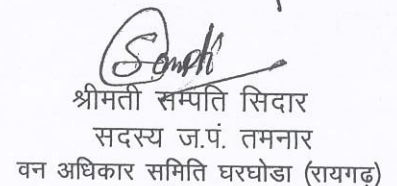 Sampti
श्रीमती सम्पति सिदार
सदस्य ज.पं. तमनार
वन अधिकार समिति घरघोडा (रायगढ़)